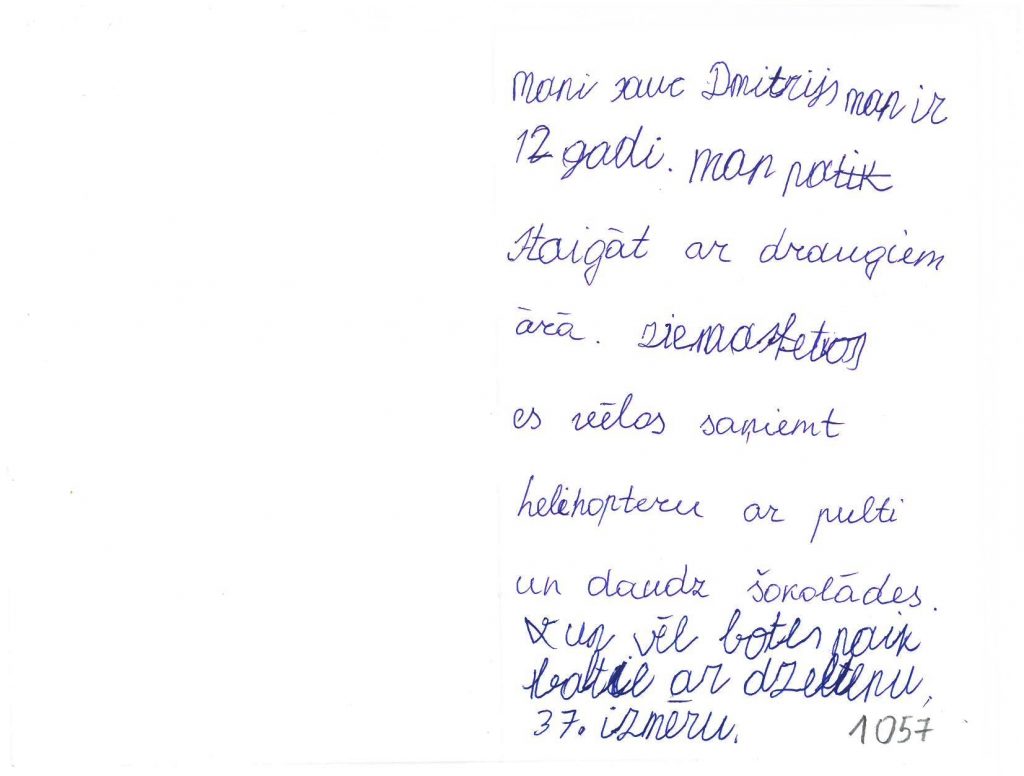 Mani sauc Dmitrijs man ir
12 gadi. Man patik
staigāt ar draugiem
ārā. ziemasstetvos
es vēlos saņiemt
helihopteru ar pulti
un daudz šokolādes.
un vēl botes naik
baltie ar dzeltenu,
37. izmēru. 1057